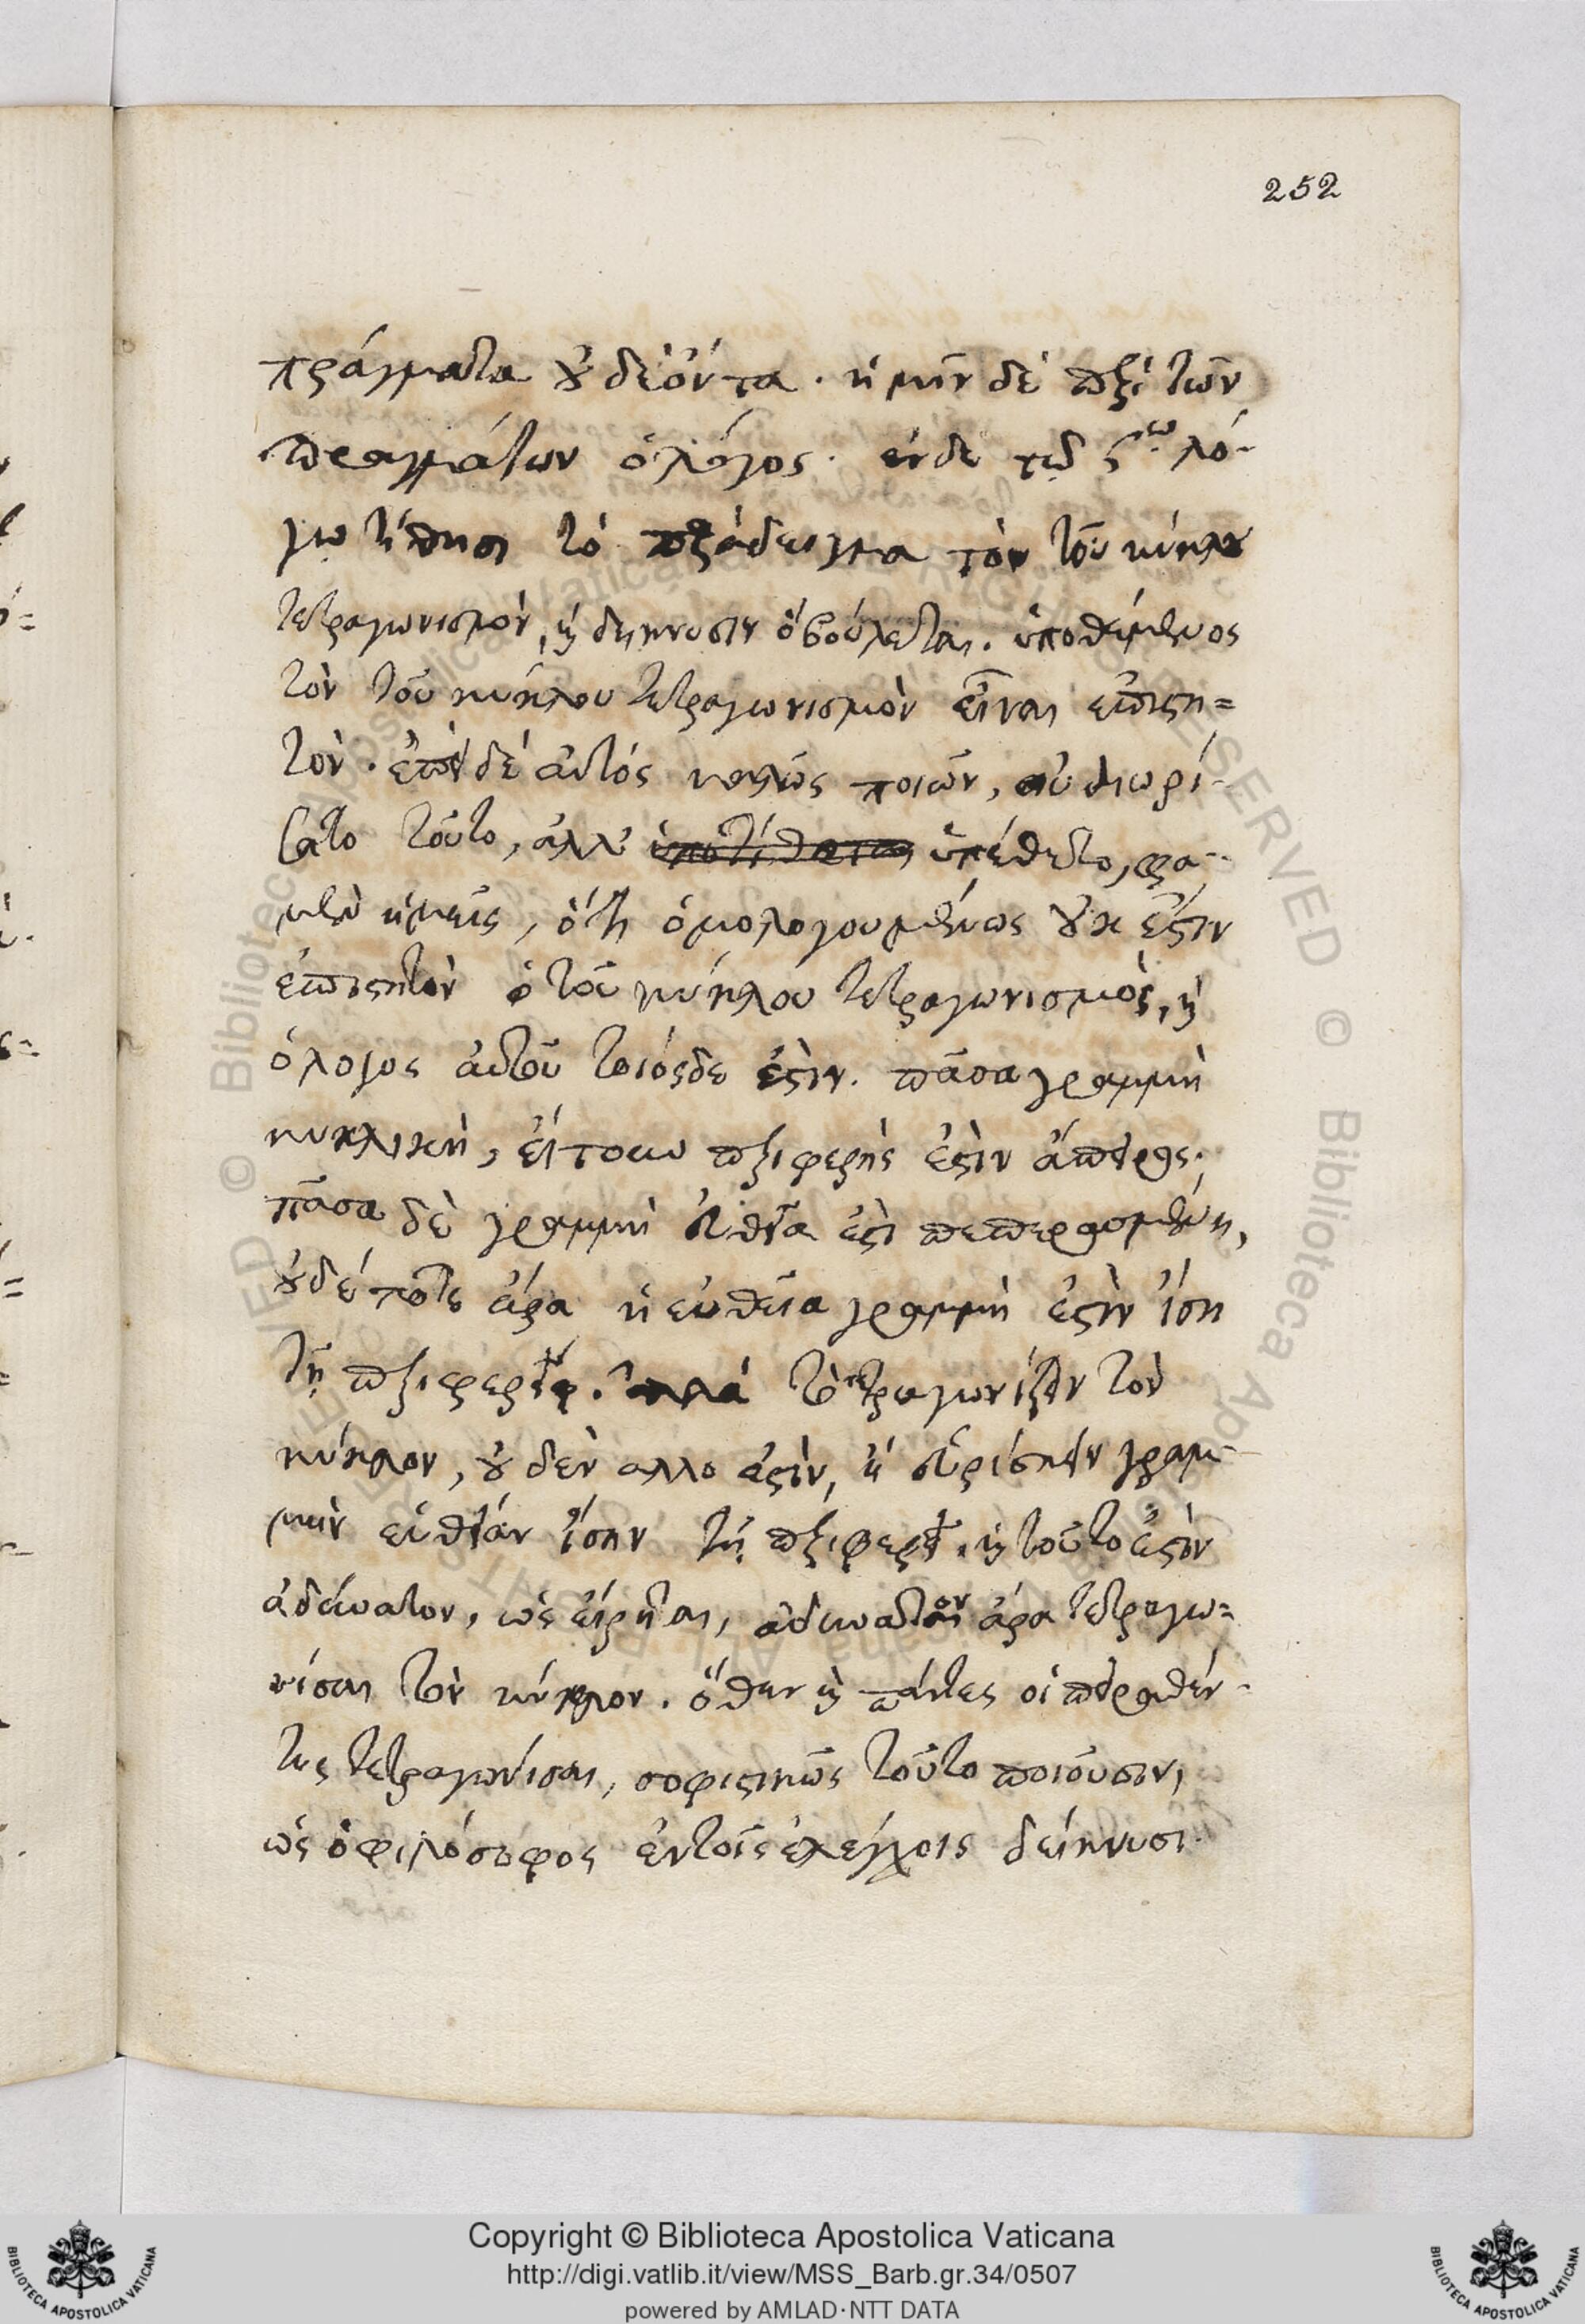 252
πράγματα οὐδὲ ὄντα. ἡμῖν δὲ περὶ τῶν
πραγμάτων ὁ λόγος. ἐν δὲ τῷ ςω λό-
γω τίθησι τὸ παράδειγμα τὸν τοῦ κύκλου
τετραγωνισμὸν, καὶ δείκνυσιν ὃ βούλεται. ὑποθέμενος
τὸν τοῦ κύκλου τετραγωνισμὸν εἶναι ἐπιστη=
τὸν. ἐπεὶ δὲ αὐτός καλῶς ποιῶν, οὐ διωρί-
σατο τοῦτο, ἀλλ' ὑπέθετο, φα-
μὲν ἡμεῖς, ὅτι ὁμολογουμένως οὐκ ἔστιν
ἐπιστητὸν ὁ τοῦ κύκλου τετραγωνισμὸς, καὶ
ὁ λόγος αὐτοῦ τοιόςδε ἐστὶν. πᾶσα γραμμὴ
κυκλικὴ, εἴτουν περιφερὴς ἐστὶν ἄπειρος,
πᾶσα δὲ γραμμὴ εὐθεῖα ἐστὶ πεπερασμένη,
οὐδέποτε ἄρα ἡ εὐθεῖα γραμμὴ ἐστὶν ἴση
τῇ περιφερεῖ. ἀλλὰ τὸ τετραγωνίζειν τὸν
κύκλον, οὐδὲν αλλο ἐστὶν, ἢ εὑρίσκειν γραμ-
μὴν εὐθεῖαν ἴσην τῇ περιφερεῖ. καὶ τοῦτο ἐστὶν
ἀδύνατον, ὡς εἴρηται, ἀδύνατον ἄρα τετραγω=
νίσαι τὸν κύκλον. ὅθεν καὶ πάντες οἱ πειραθέν-
τες τετραγωνίσαι, σοφιστικῶς τοῦτο ποιοῦσιν,
ὡς ὁ φιλόσοφος ἐν τοῖς ἐλέγχοις δείκνυσι.
Copyright © Biblioteca Apostolica Vaticana
http://digi.vatlib.it/view/MSS_Barb.gr.34/0507
powered by AMLAD·NTT DATA
BIBLIOTECA APOSTOLICA VATICANA
BIBLIOTECA APOSTOLICA VATICANA